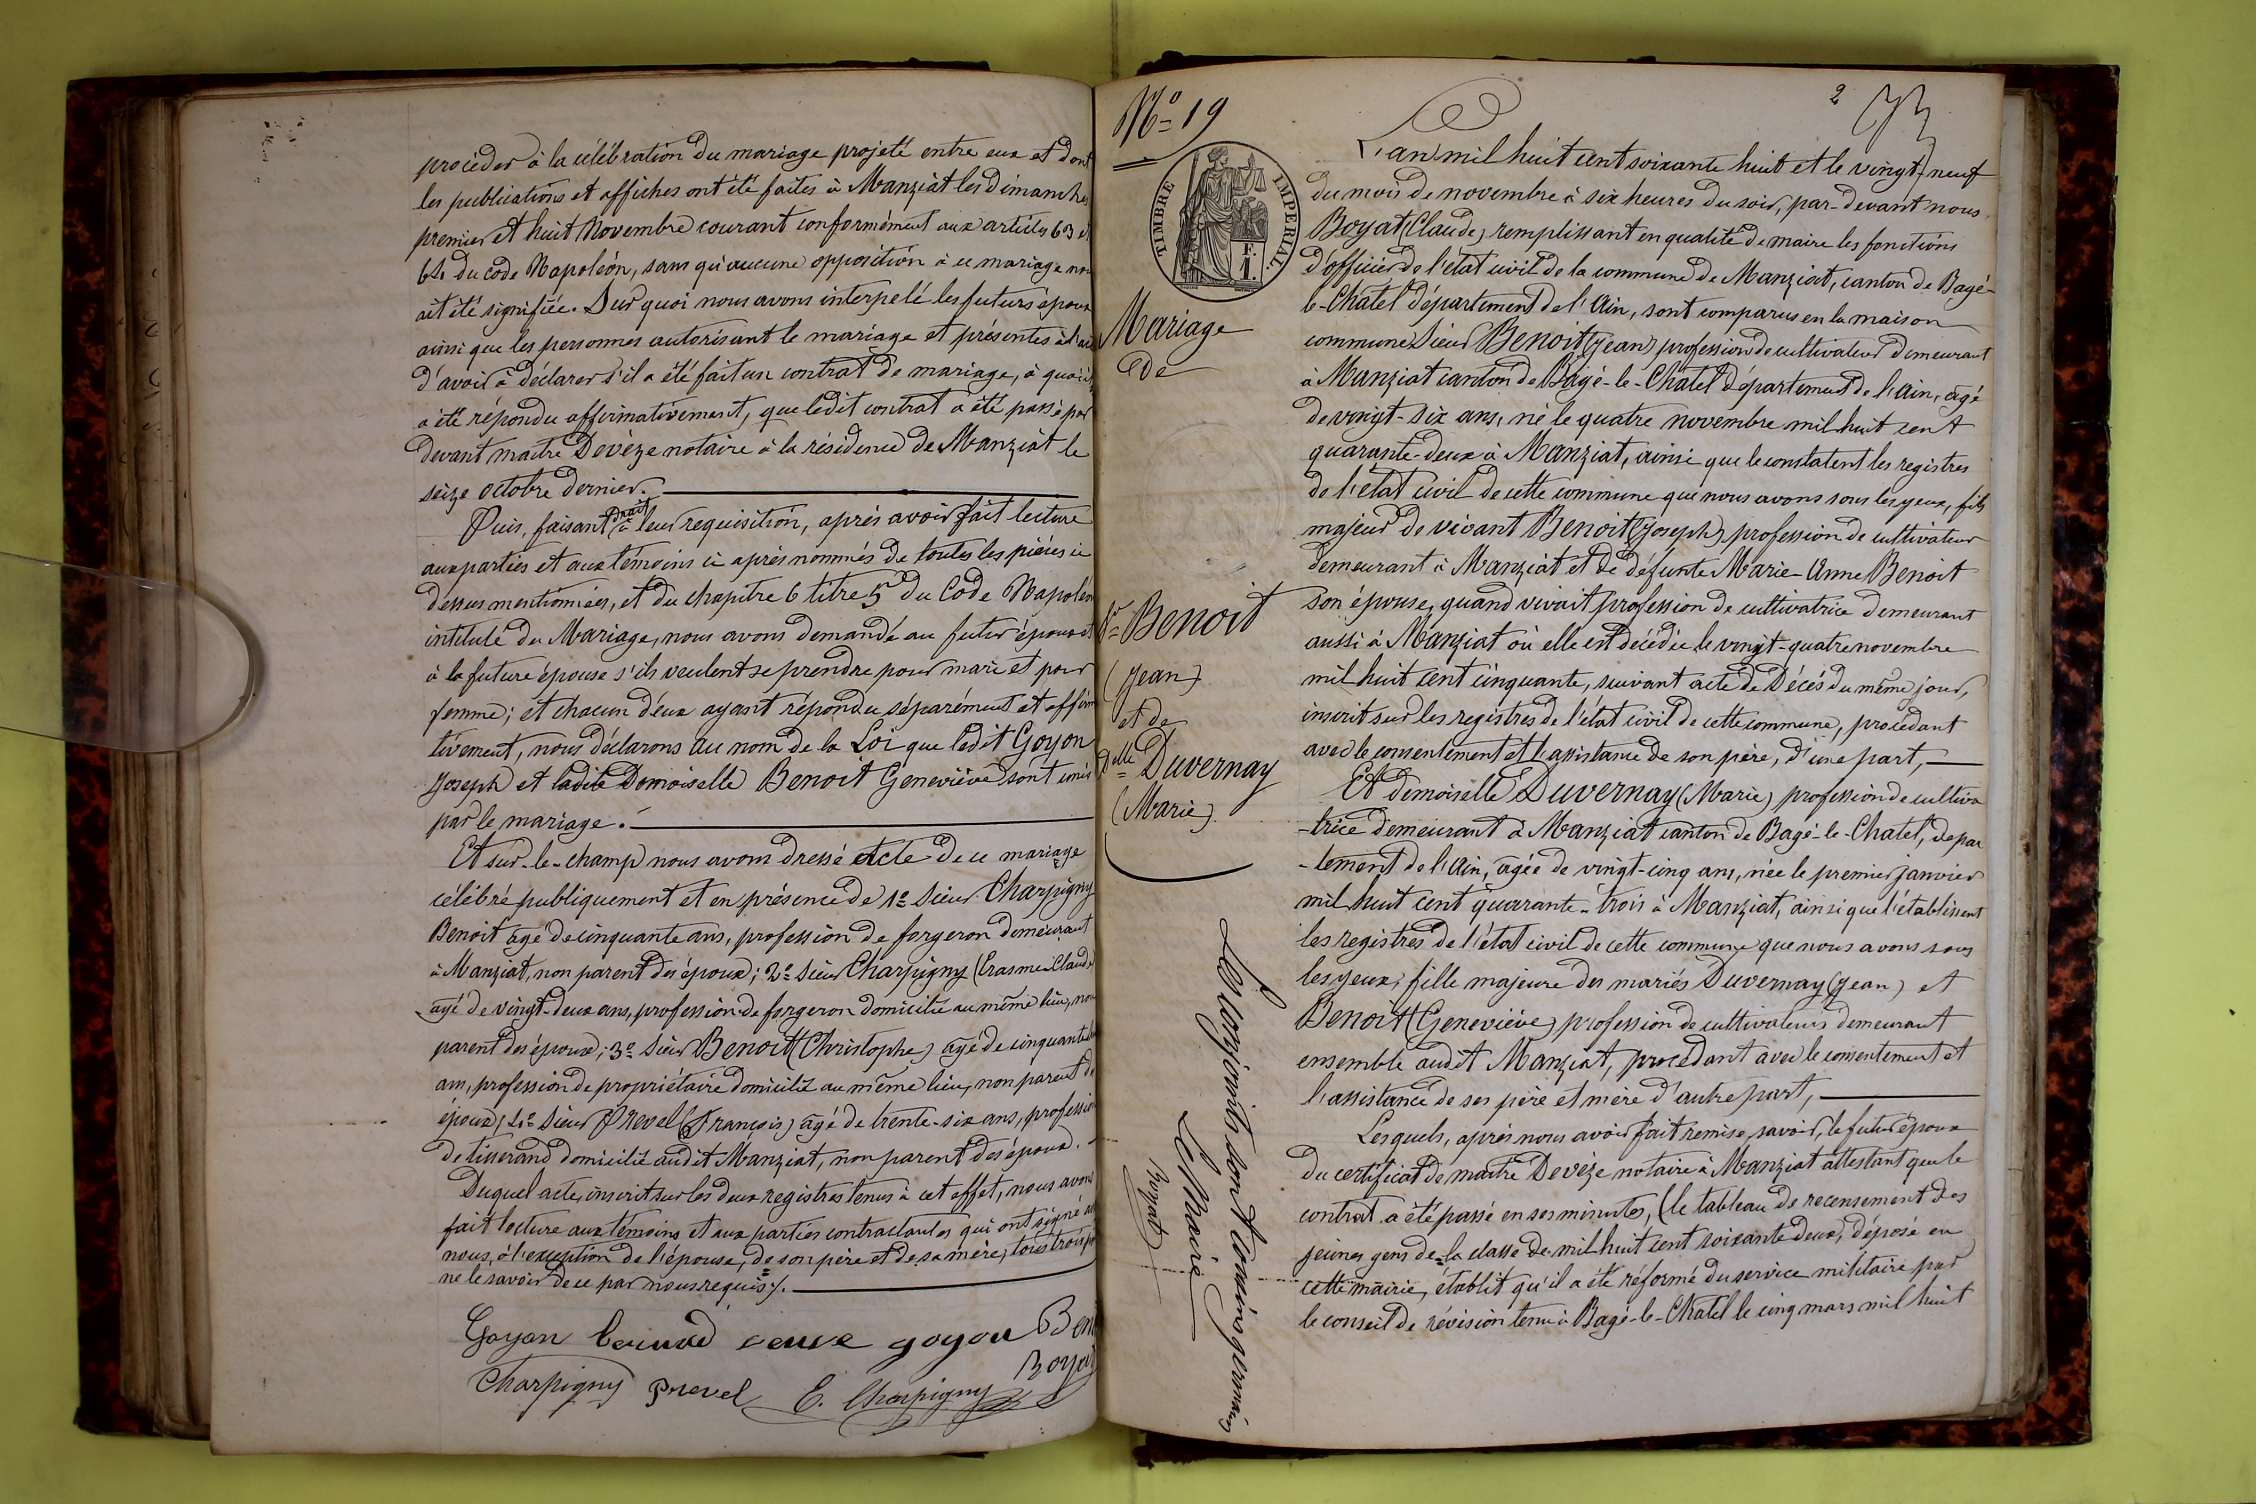 procéder à la célébration du mariage projeté entre eux et dont
les publications et affiches ont été faites à Manziat les dimanches
premier et huit Novembre courant conformément aux articles 63 et
64 du code Napoléon, sans qu'aucune opposition à ce mariage nous
ait été signifiée. Sur quoi nous avons interpelé les futurs époux
ainsi que les personnes autorisant le mariage et présentes à l'acte
d'avoir à déclarer s'il a été fait un contrat de mariage, à quoi il
a été répondu affirmativement, que ledit contrat a été passé par
devant maître Devèze notaire à la résidence de Manziat le
seize octobre dernier.
Puis, faisant droit à leur requisition, après avoir fait lecture
aux parties et aux témoins ci après nommés de toutes les pièces ci
dessus mentionnées, et du chapitre 6 titre 5 du Code Napoléon
intitulé du Mariage, nous avons demandé au futur époux et
à la future épouse s'ils veulent se prendre pour mari et pour
femme; et chacun d'eux ayant répondu séparément et affirma
tivement, nous déclarons au nom de la Loi que ledit Goyon
Joseph et ladite Demoiselle Benoit Geneviève sont unis
par le mariage.
Et sur-le-champ nous avons dressé acte de ce mariage
célébré publiquement et en présence de 1º Sieur Charpigny
Benoit âgé de cinquante ans, profession de forgeron demeurant
à Manziat, non parent des époux; 2º Sieur Charpigny (Erasme-Claude)
âgé de vingt-deux ans, profession de forgeron domicilié au même lieu, non
parent des époux; 3º Sieur Benoit (Christophe) âgé de cinquante
ans, profession de propriétaire domicilié au même lieu, non parent des
époux; 4º Sieur Prevel (François) âgé de trente-six ans, profession
de tisserand domicilié audit Manziat, non parent des époux.
Duquel acte, inscrit sur les deux registres tenus à cet effet, nous avons
fait lecture aux témoins et aux parties contractantes qui ont signé avec
nous, à l'exception de l'épouse, de son père et de sa mère, tous trois pour
ne le savoir de ce par nous requis.
Goyon veuve goyon Benoit
Charpigny Prevel E. Charpigny Boyat
Nº 19
TIMBRE IMPERIAL
F.
1.
Mariage
de
Sr Benoit
(Jean)
et de
Delle Duvernay
(Marie)
Les conjoints sont cousins germains
Le Maire
Boyat
2
L'an mil huit cent soixante huit et le vingt-neuf
du mois de novembre à six heures du soir, par-devant nous
Boyat (Claude) remplissant en qualité de maire les fonctions
d'officier de l'état civil de la commune de Manziat, canton de Bagé-
le-Chatel département de l'Ain, sont comparus en la maison
commune Sieur Benoit (Jean) profession de cultivateur demeurant
à Manziat canton de Bagé-le-Chatel département de l'Ain, âgé
de vingt-six ans, né le quatre novembre mil huit cent
quarante-deux à Manziat, ainsi que le constatent les registres
de l'état civil de cette commune que nous avons sous les yeux, fils
majeur de vivant Benoit (Joseph) profession de cultivateur
demeurant à Manziat et de défunte Marie-Anne Benoit
son épouse, quand vivait profession de cultivatrice demeurant
aussi à Manziat où elle est décédée le vingt-quatre novembre
mil huit cent cinquante, suivant acte de Décés du même jour,
inscrit sur les registres de l'état civil de cette commune, procédant
avec le consentement et l'assistance de son père, d'une part,
Et demoiselle Duvernay (Marie) profession de cultiva
-trice demeurant à Manziat canton de Bagé-le-Chatel, dépar
-tement de l'Ain, âgée de vingt-cinq ans, née le premier janvier
mil huit cent quarante-trois à Manziat, ainsi que l'établissent
les registres de l'état civil de cette commune que nous avons sous
les yeux, fille majeure des mariés Duvernay (Jean) et
Benoit (Geneviève) profession de cultivateurs demeurant
ensemble audit Manziat, procédant avec le consentement et
l'assistance de ses père et mère d'autre part,
Lesquels, après nous avoir fait remise, savoir, le futur époux
du certificat de maître Devèze notaire à Manziat attestant que le
contrat a été passé en ses minutes, (le tableau de recensement des
jeunes gens de la classe de mil huit cent soixante deux, déposé en
cette mairie, établit qu'il a été réformé du service militaire par
le conseil de révision tenu à Bagé-le-Chatel le cinq mars mil huit